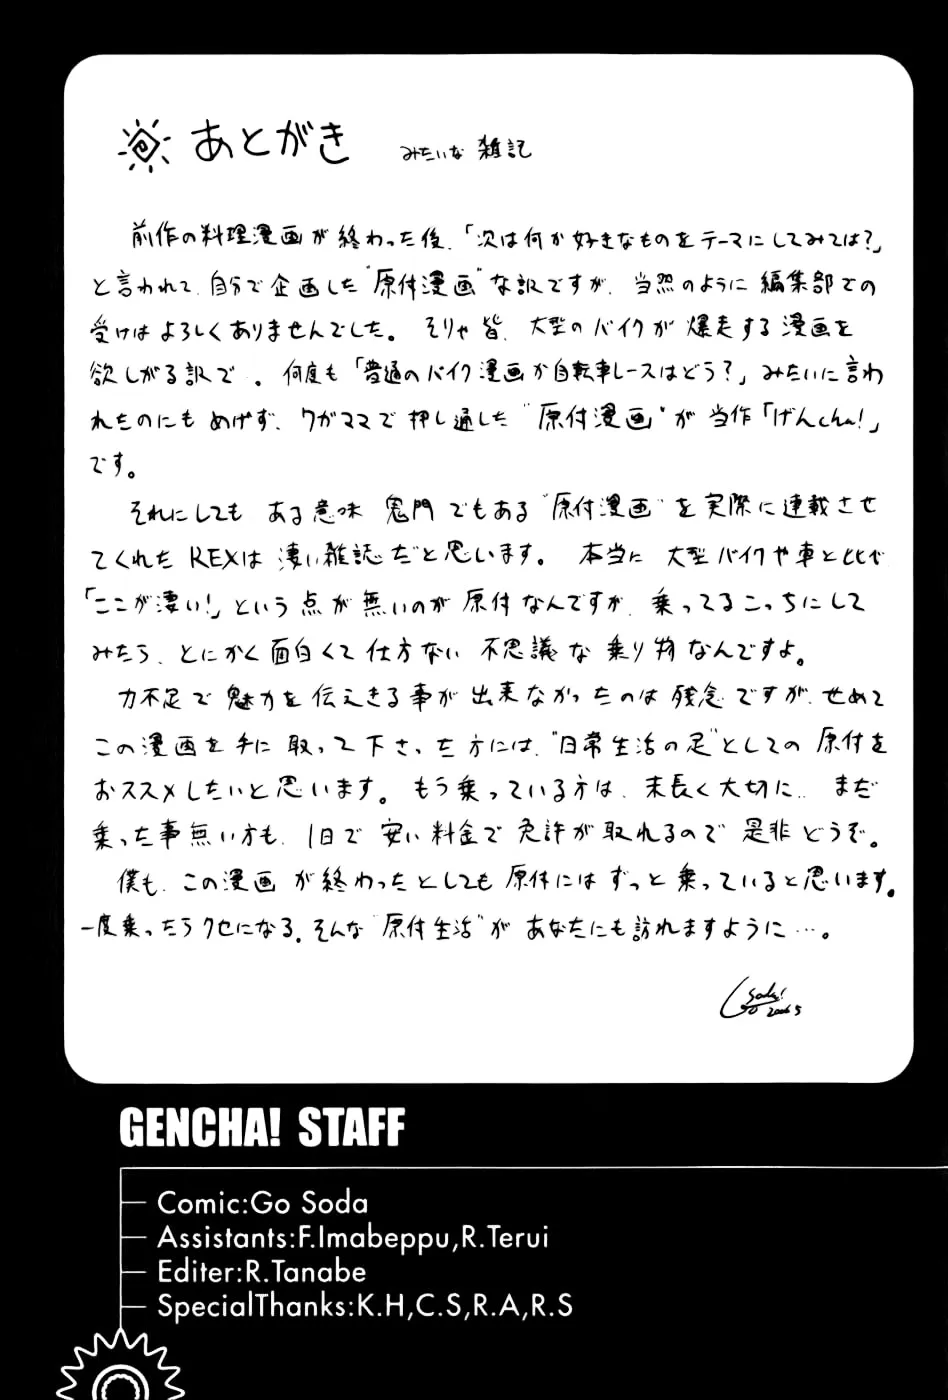 あとがき みたいな 雑記
前作の料理漫画が終わった後、「次は何か好きなものをテーマにしてみては?」
と言われて、自分で企画した"原付漫画"な訳ですが、当然のように編集部での
受けはよろしくありませんでした。そりゃ皆、大型のバイクが爆走する漫画を
欲しがる訳で。何度も「普通のバイク漫画か自転車レースはどう?」みたいに言わ
れたのにもめげず、ワガママで押し通した"原付漫画"が当作「げんcha!」
です。
それにしてもある意味鬼門でもある"原付漫画"を実際に連載させ
てくれたREXは凄い雑誌だと思います。本当に大型バイクや車と比べ
「ここが凄い!」という点が無いのが原付なんですが、乗ってるこっちにして
みたら、とにかく面白くて仕方ない不思議な乗り物なんですよ。
力不足で魅力を伝えきる事が出来なかったのは残念ですが、せめて
この漫画を手に取って下さった方には、"日常生活の足"としての原付を
おススメしたいと思います。もう乗っている方は、末長く大切に。まだ
乗った事無い方も、1日で安い料金で免許が取れるので是非どうぞ。
僕も、この漫画が終わったとしても原付にはずっと乗っていると思います。
一度乗ったらクセになる、そんな"原付生活"があなたにも訪れますように…。
Go Soda! 2006 5
GENCHA! STAFF
Comic:Go Soda
Assistants:F.Imabeppu,R.Terui
Editer:R.Tanabe
SpecialThanks:K.H,C.S,R.A,R.S